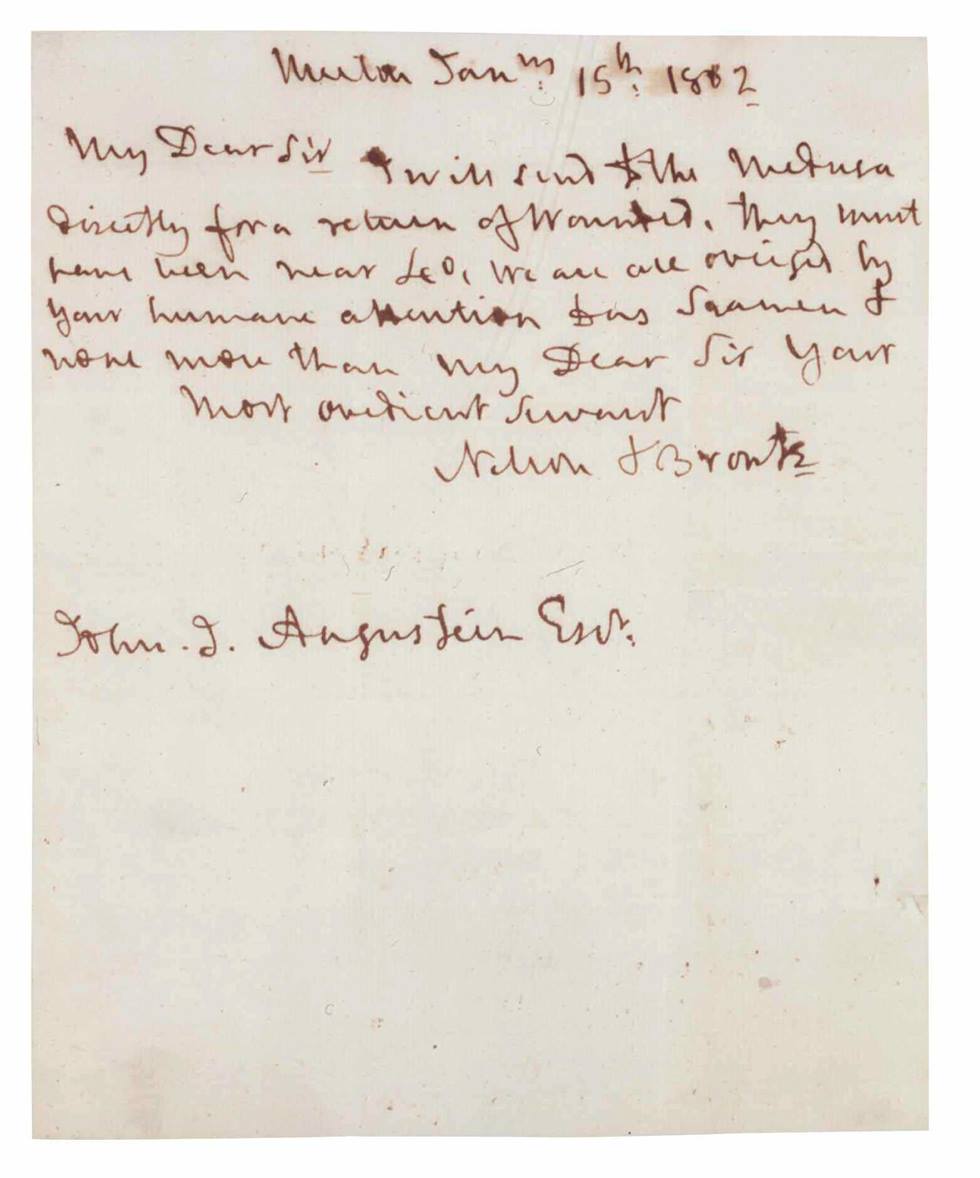 Merton Jan^ry: 15^th: 1802
My Dear Sir I will send to the Medusa
directly for a return of Wounded, they must
have been near 40, We are all obliged by
Your humane attention to us Seamen &
none more than My Dear Sir Your
Most obedient Servant
Nelson & Bronte
John. J. Augustein Esq^r: